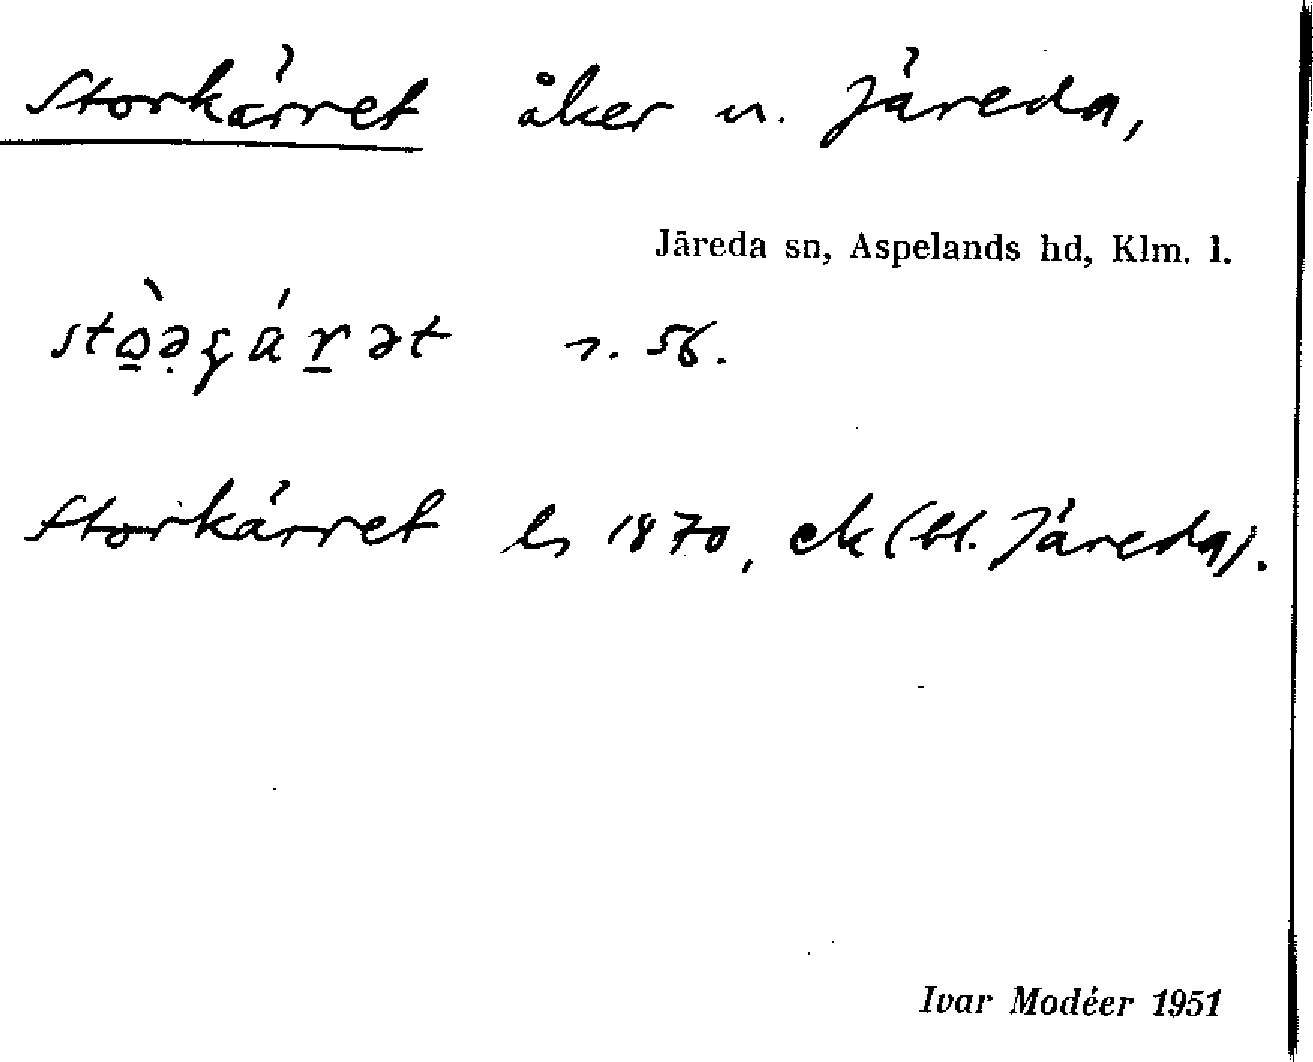 Storkärret åker u. Järeda,
Järeda sn, Aspelands hd, Klm. l.
s. 56.
Storkärret ls 1870, ek (bl. Järeda).
Ivar Modéer 1951